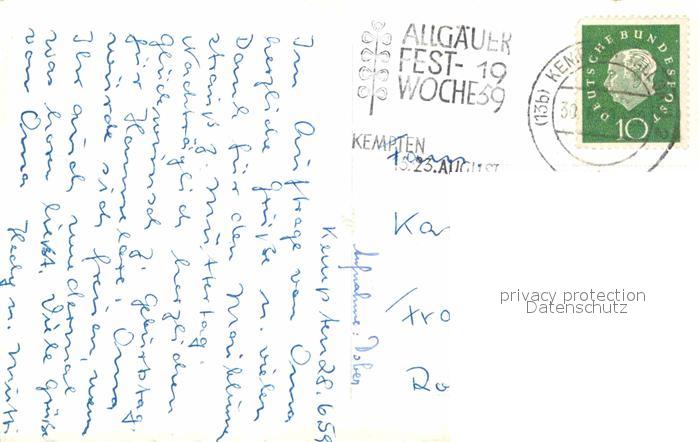 ALLGÄUER
FEST- 19
WOCHE 59
KEMPTEN
13.-23. AUGUST
(13b) KEMP
30.
DEUTSCHE BUNDESPOST
10
Kempten 28.6.59
Im Auftrage von Oma
herzliche Grüße u. vielen
Dank für den Maiblumen
strauß z. Muttertag.
Nachträglich herzlichen
Glückwunsch z. Geburtstag
für Hannelore. Oma
würde sich freuen, wenn
Ihr auch wiedermal
was hören ließt. Viele Grüße
von Oma Hedy u. Mutti
Aufnahme:
Ka
Kro
privacy protection
Datenschutz